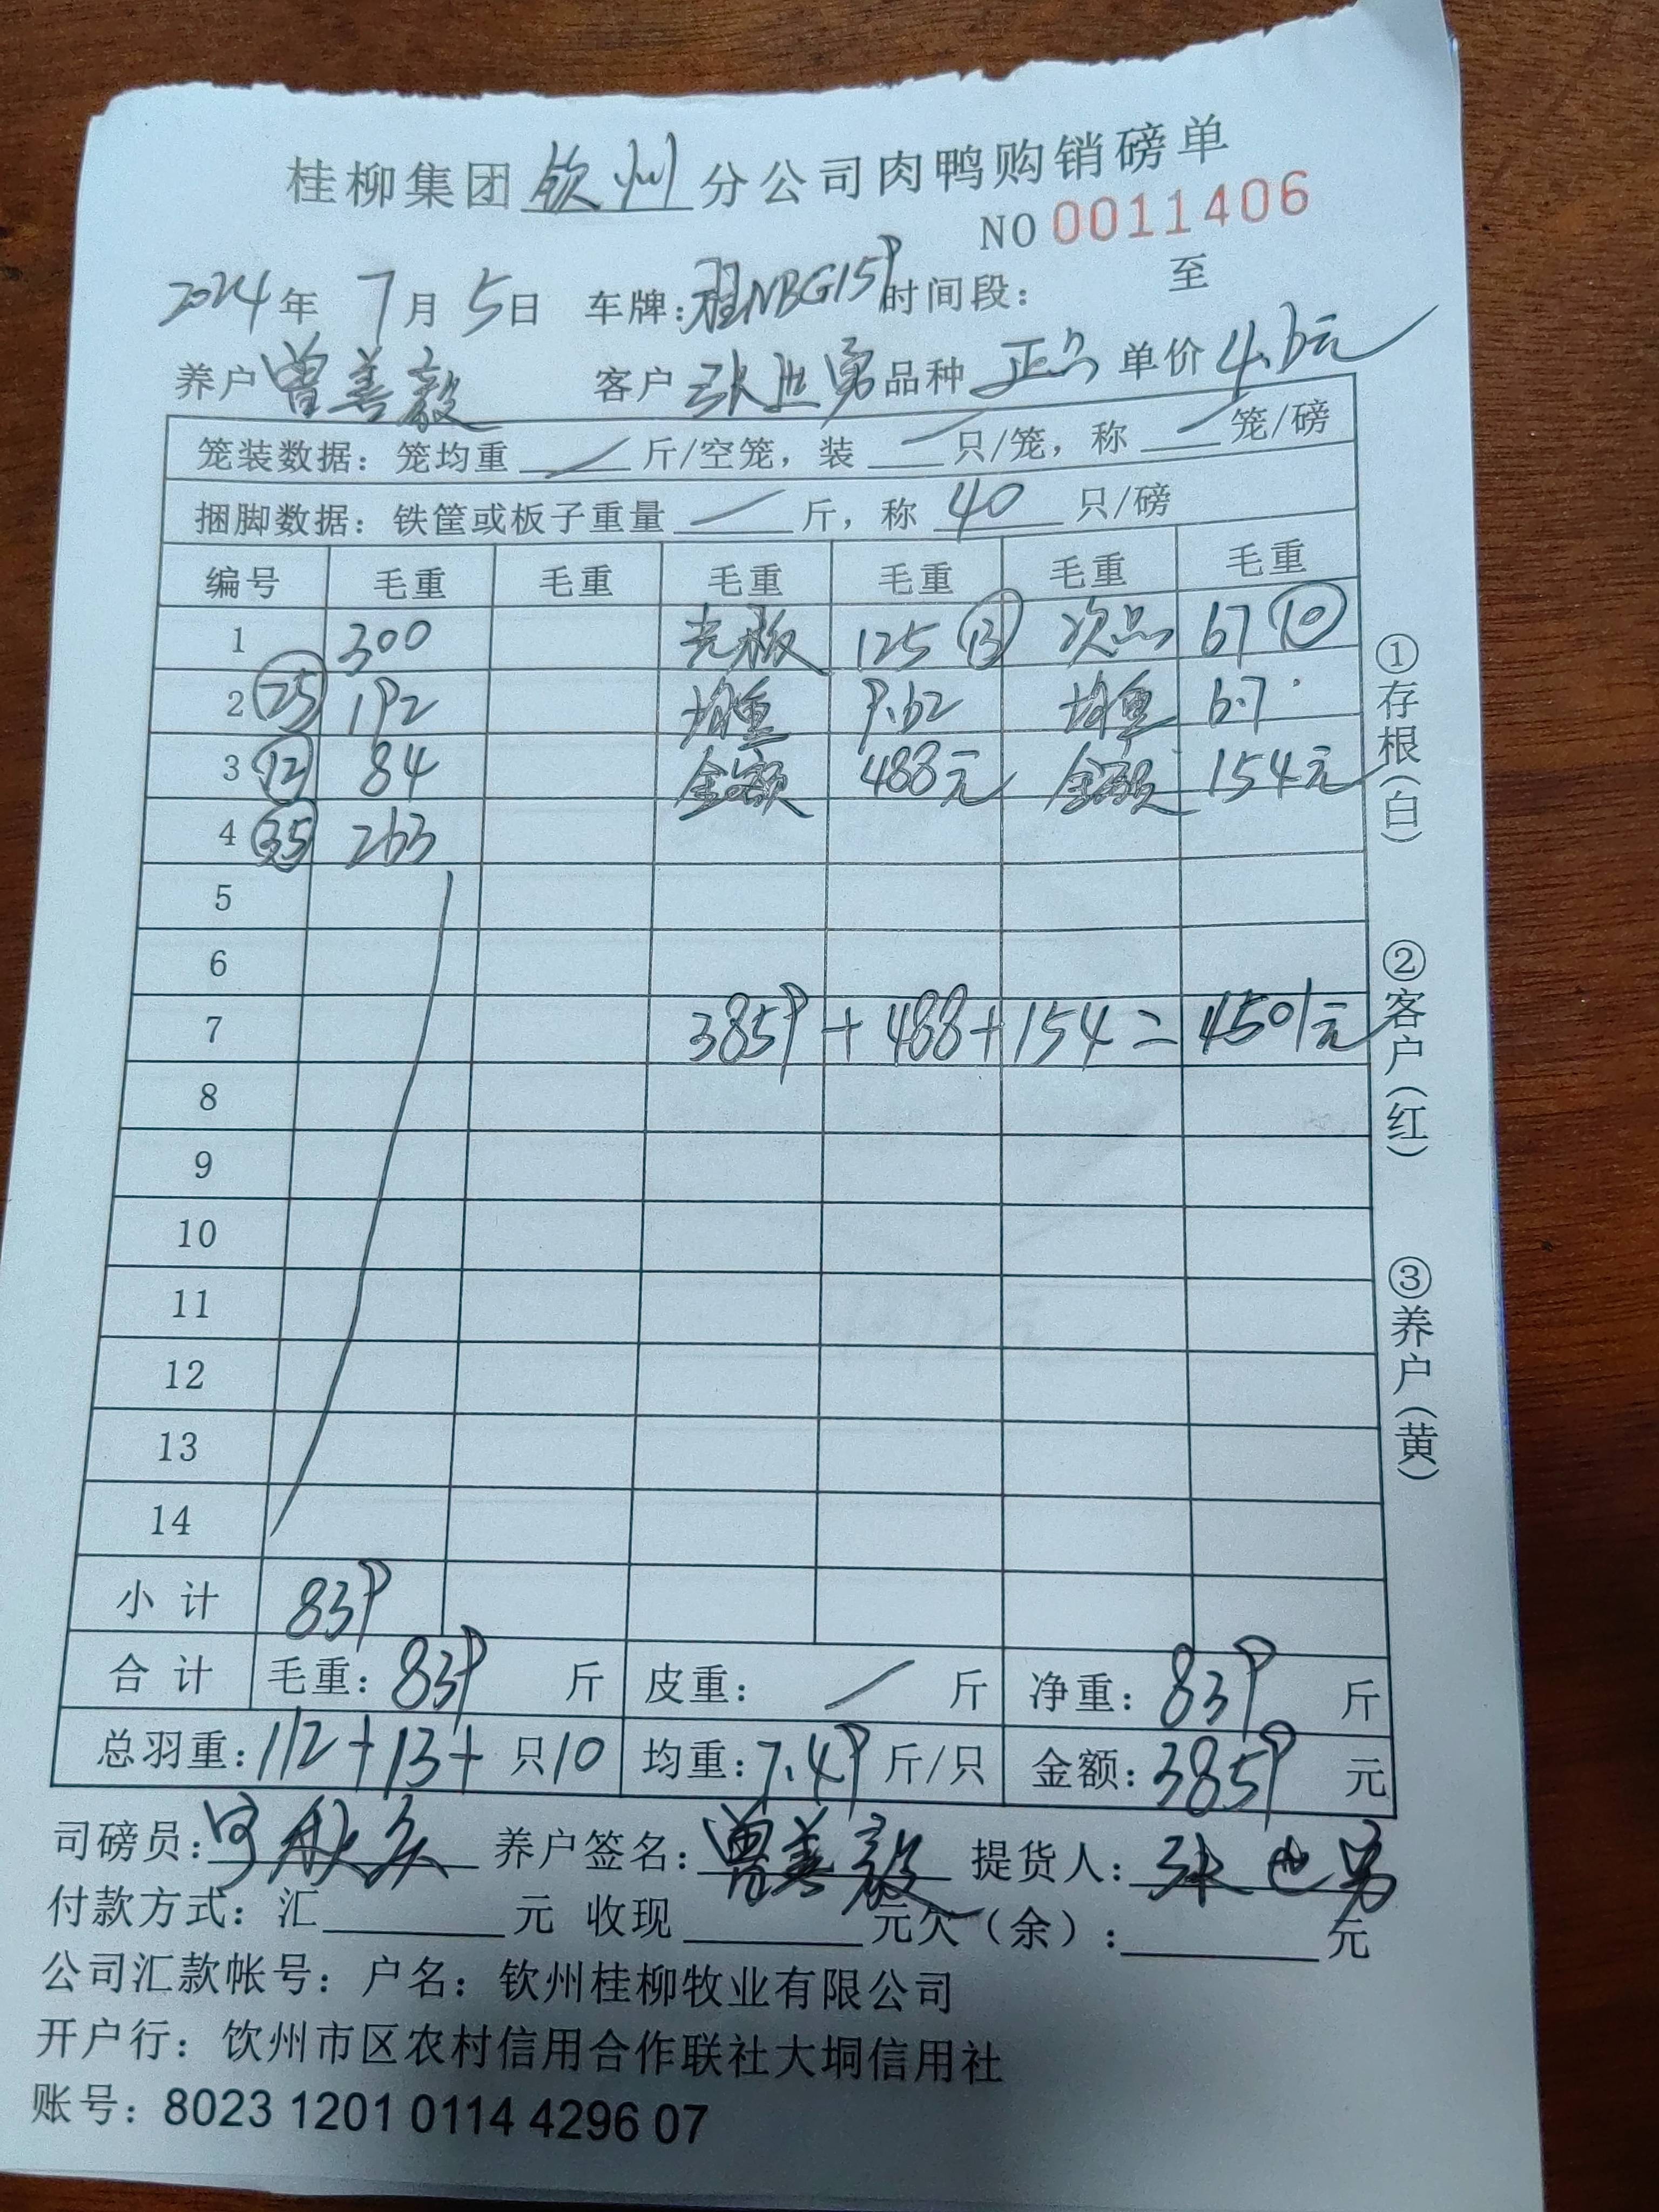 桂柳集团钦州分公司肉鸭购销磅单
NO 0011406
2024年 7月 5日 车牌:桂NBG159 时间段: 至
养户 曾善毅 客户 张世勇 品种 正品 单价 4.6元
笼装数据: 笼均重 / 斤/空笼, 装 / 只/笼, 称 / 笼/磅
捆脚数据: 铁筐或板子重量 / 斤, 称 40 只/磅
编号 毛重 毛重 毛重 毛重 毛重 毛重
1 300 光板 125 ⑬ 次品 67 ⑩
2 ㉕ 192 均重 9.62 均重 6.7
3 ⑫ 84 金额 488元 金额 154元
4 ㉟ 263
5
6
7 3859+488+154=4501元
8
9
10
11
12
13
14
小计 839
合计 毛重: 839 斤 皮重: / 斤 净重: 839 斤
总羽重: 112+13+ 只10 均重: 7.49 斤/只 金额: 3859 元
司磅员: 养户签名: 曾善毅 提货人: 张世勇
付款方式: 汇 元 收现 元欠(余): 元
公司汇款帐号: 户名: 钦州桂柳牧业有限公司
开户行: 饮州市区农村信用合作联社大垌信用社
账号: 8023 1201 0114 4296 07
①存根(白)
②客户(红)
③养户(黄)